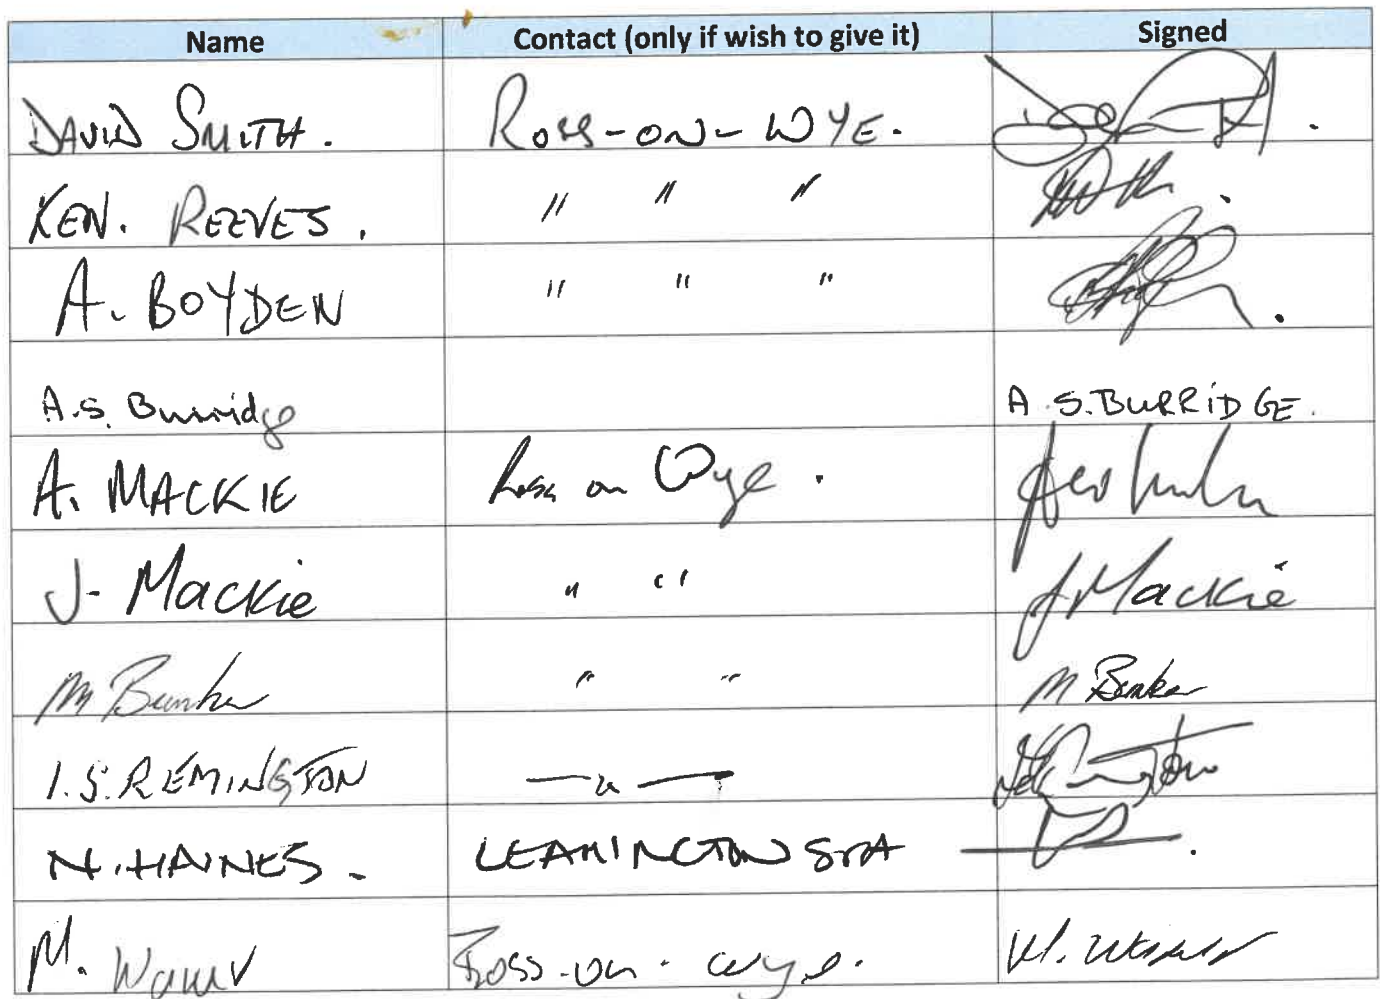 Name Contact (only if wish to give it) Signed
DAVID SMITH. ROSS-ON-WYE.
KEN. REEVES. " " "
A. BOYDEN " " "
A.S. Burridge A.S.BURRIDGE.
A. MACKIE Ross on Wye.
J. Mackie " " J Mackie
M Bunker " " M Bunker
I.S. REMINGTON —"—
N. HAINES. LEAMINGTON SPA
M. Ross-on-wye. M.